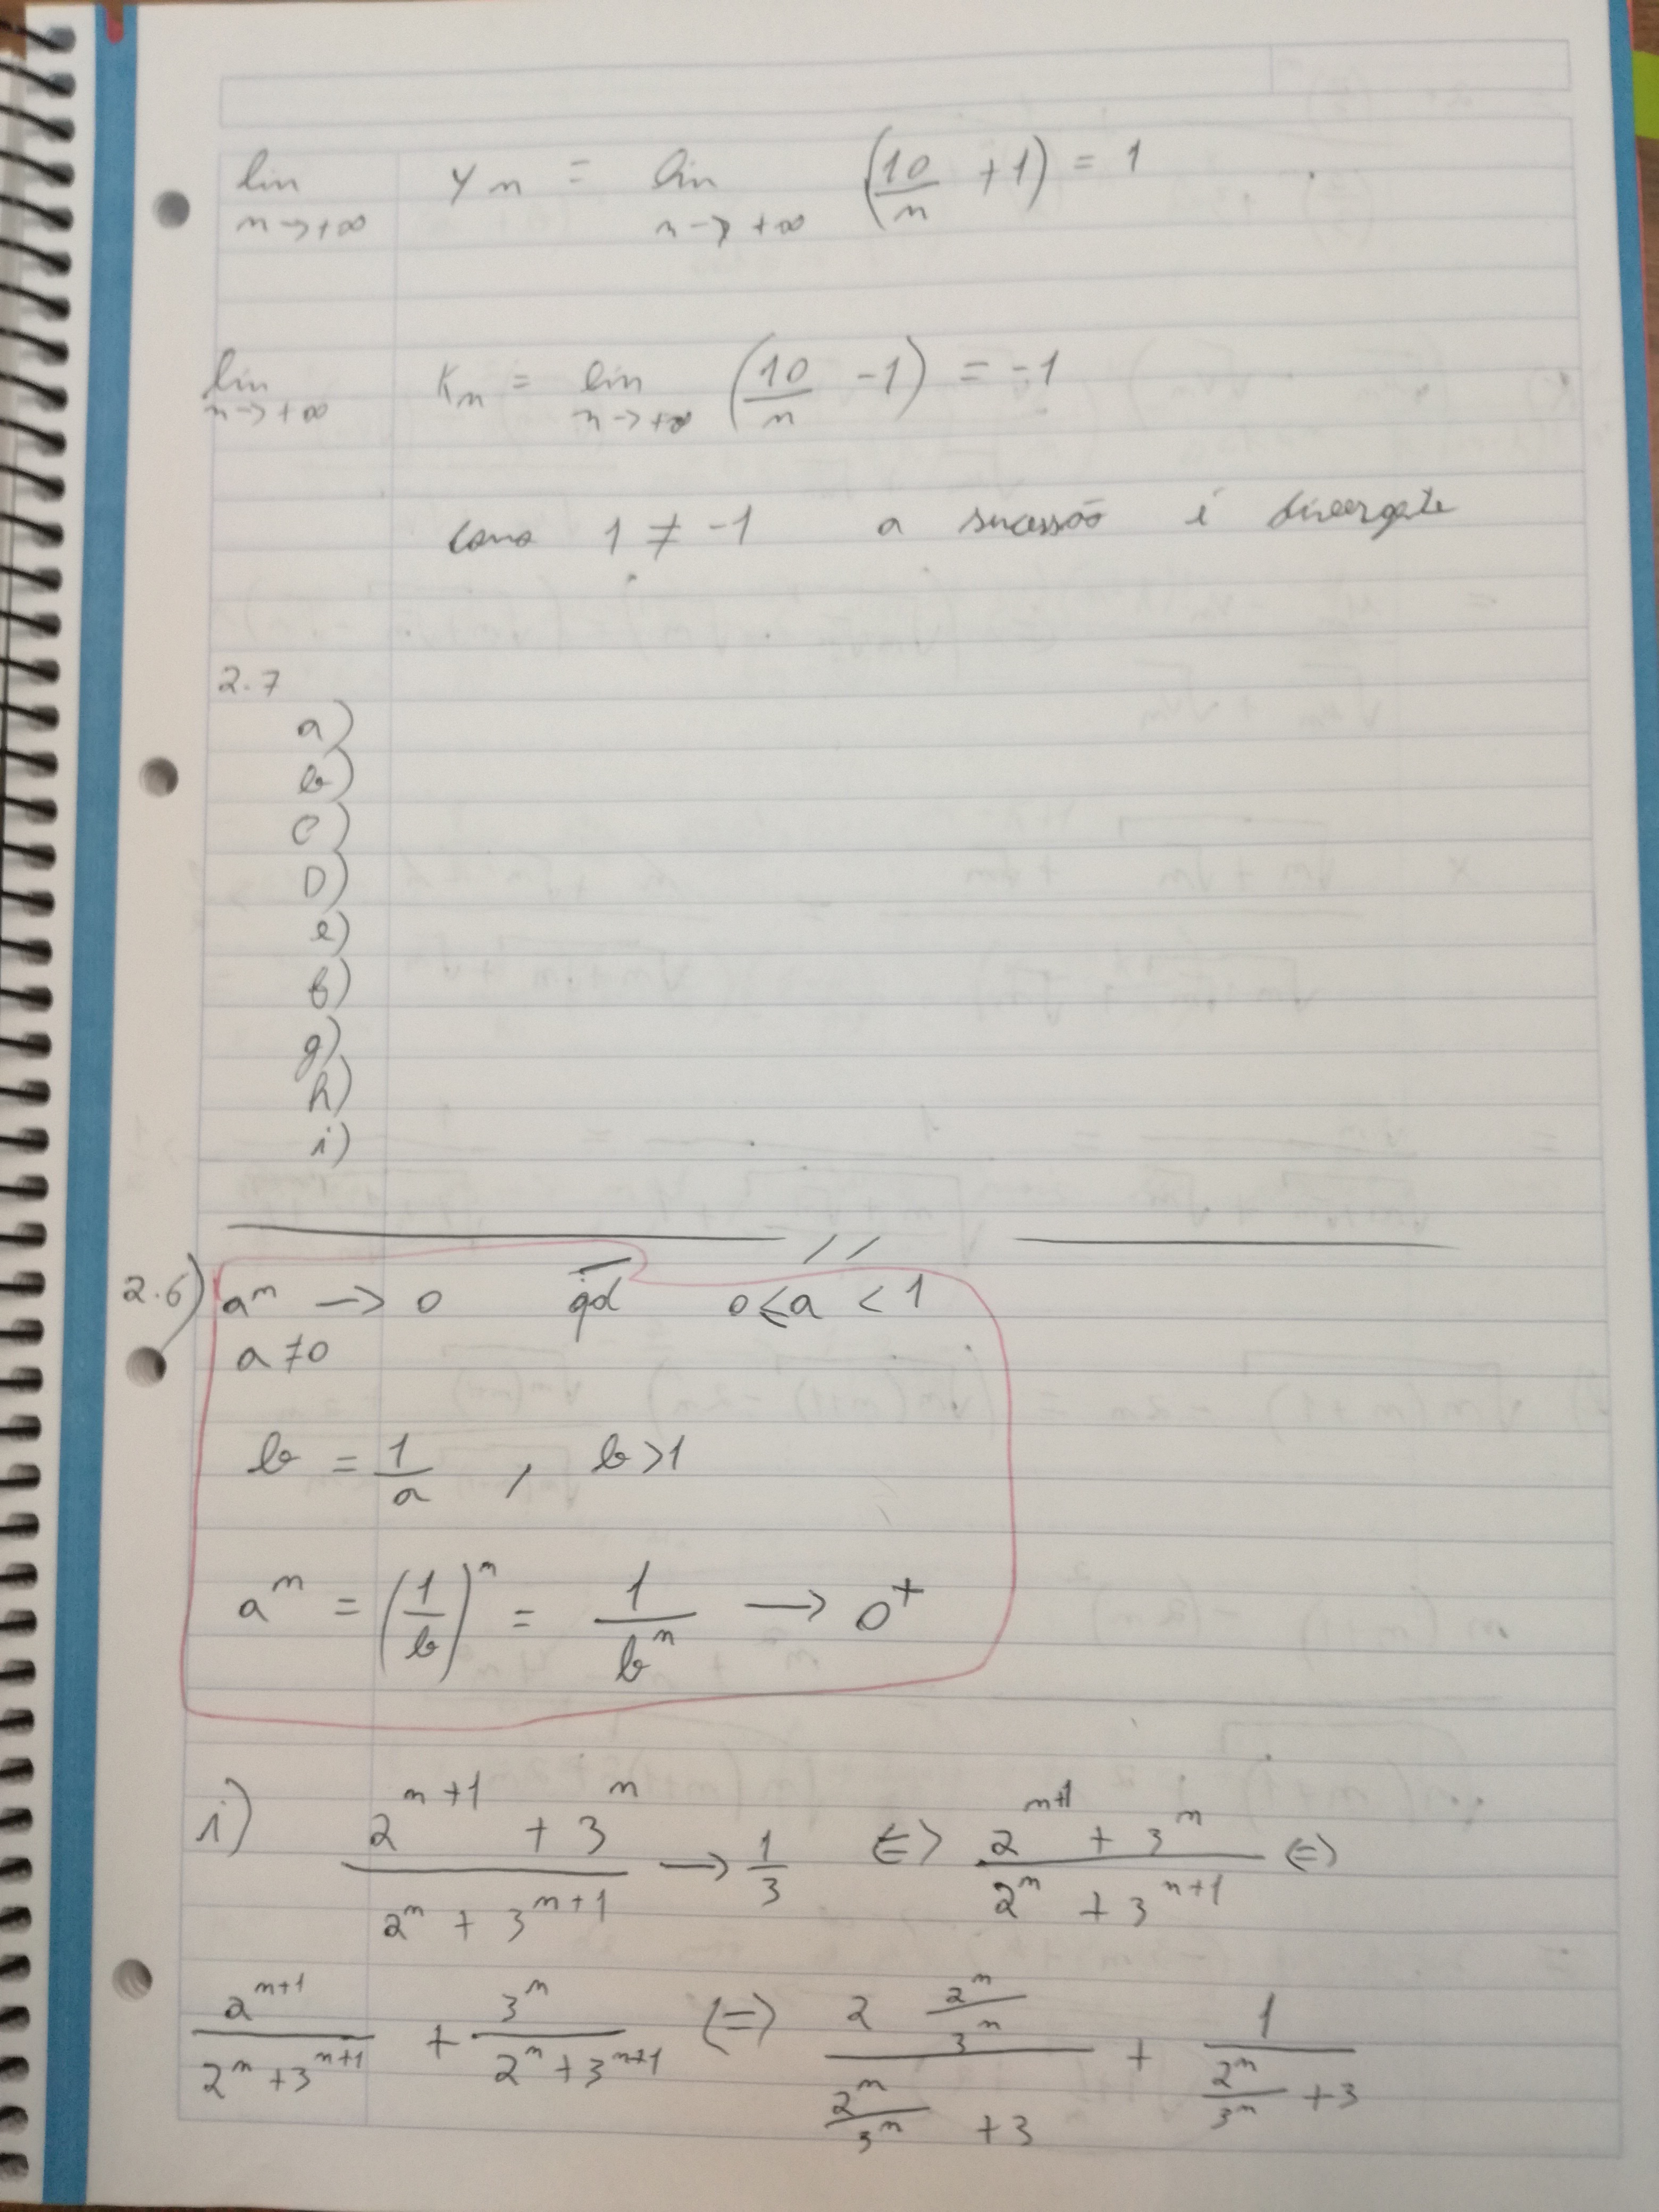 lim yn = lim (10/n + 1) = 1
n->+∞ n->+∞
lim Kn = lim (10/n - 1) = -1
n->+∞ n->+∞
como 1 ≠ -1 a sucessão é divergente
2.7
a)
b)
c)
D)
e)
f)
g)
h)
i)
//
2.6) a^n -> 0 qd 0≤a < 1
a ≠ 0
b = 1/a , b>1
a^n = (1/b)^n = 1/b^n -> 0^+
i) (2^(n+1) + 3^n)/(2^n + 3^(n+1)) -> 1/3 <=> (2^(n+1) + 3^n)/(2^n + 3^(n+1)) <=>
2^(n+1)/(2^n + 3^(n+1)) + 3^n/(2^n + 3^(n+1)) <=> (2 2^n/3^n)/(2^n/3^n + 3) + 1/(2^n/3^n + 3)